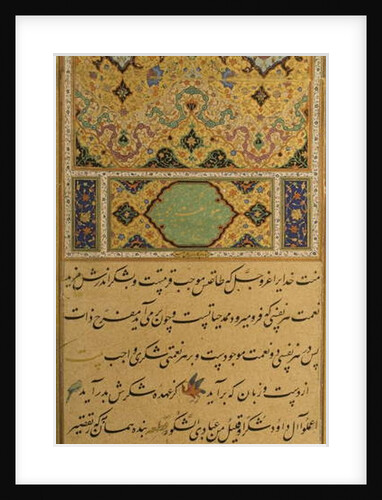 منت خدایرا عز و جل که طاعتش موجب قربتست و بشکر اندرش مزید
نعمت هر نفسی که فرو میرود ممد حیاتست و چون بر می آید مفرح ذات
پس در هر نفسی دو نعمت موجودست و بر هر نعمتی شکری واجب بیت
از دست و زبان که برآید کز عهده شکرش بدر آید
اعملوا آل داود شکرا و قلیل من عبادی الشکور بنده همان به که ز تقصیر